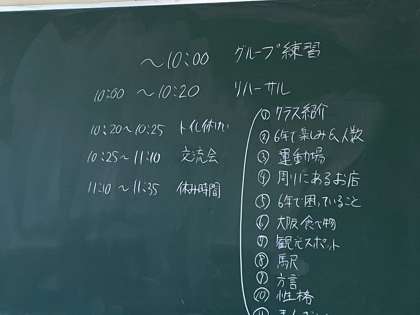 ～10:00 グループ練習
10:00 ～10:20 リハーサル
10:20～10:25 トイレ休けい
10:25～11:10 交流会
11:10 ～11:35 休み時間
① クラス紹介
② 6年で楽しみ&人数
③ 運動場
④ 周りにあるお店
⑤ 6年で困っていること
⑥ 大阪食べ物
⑦ 観光スポット
⑧ 駅
⑨ 方言
⑩ 性格